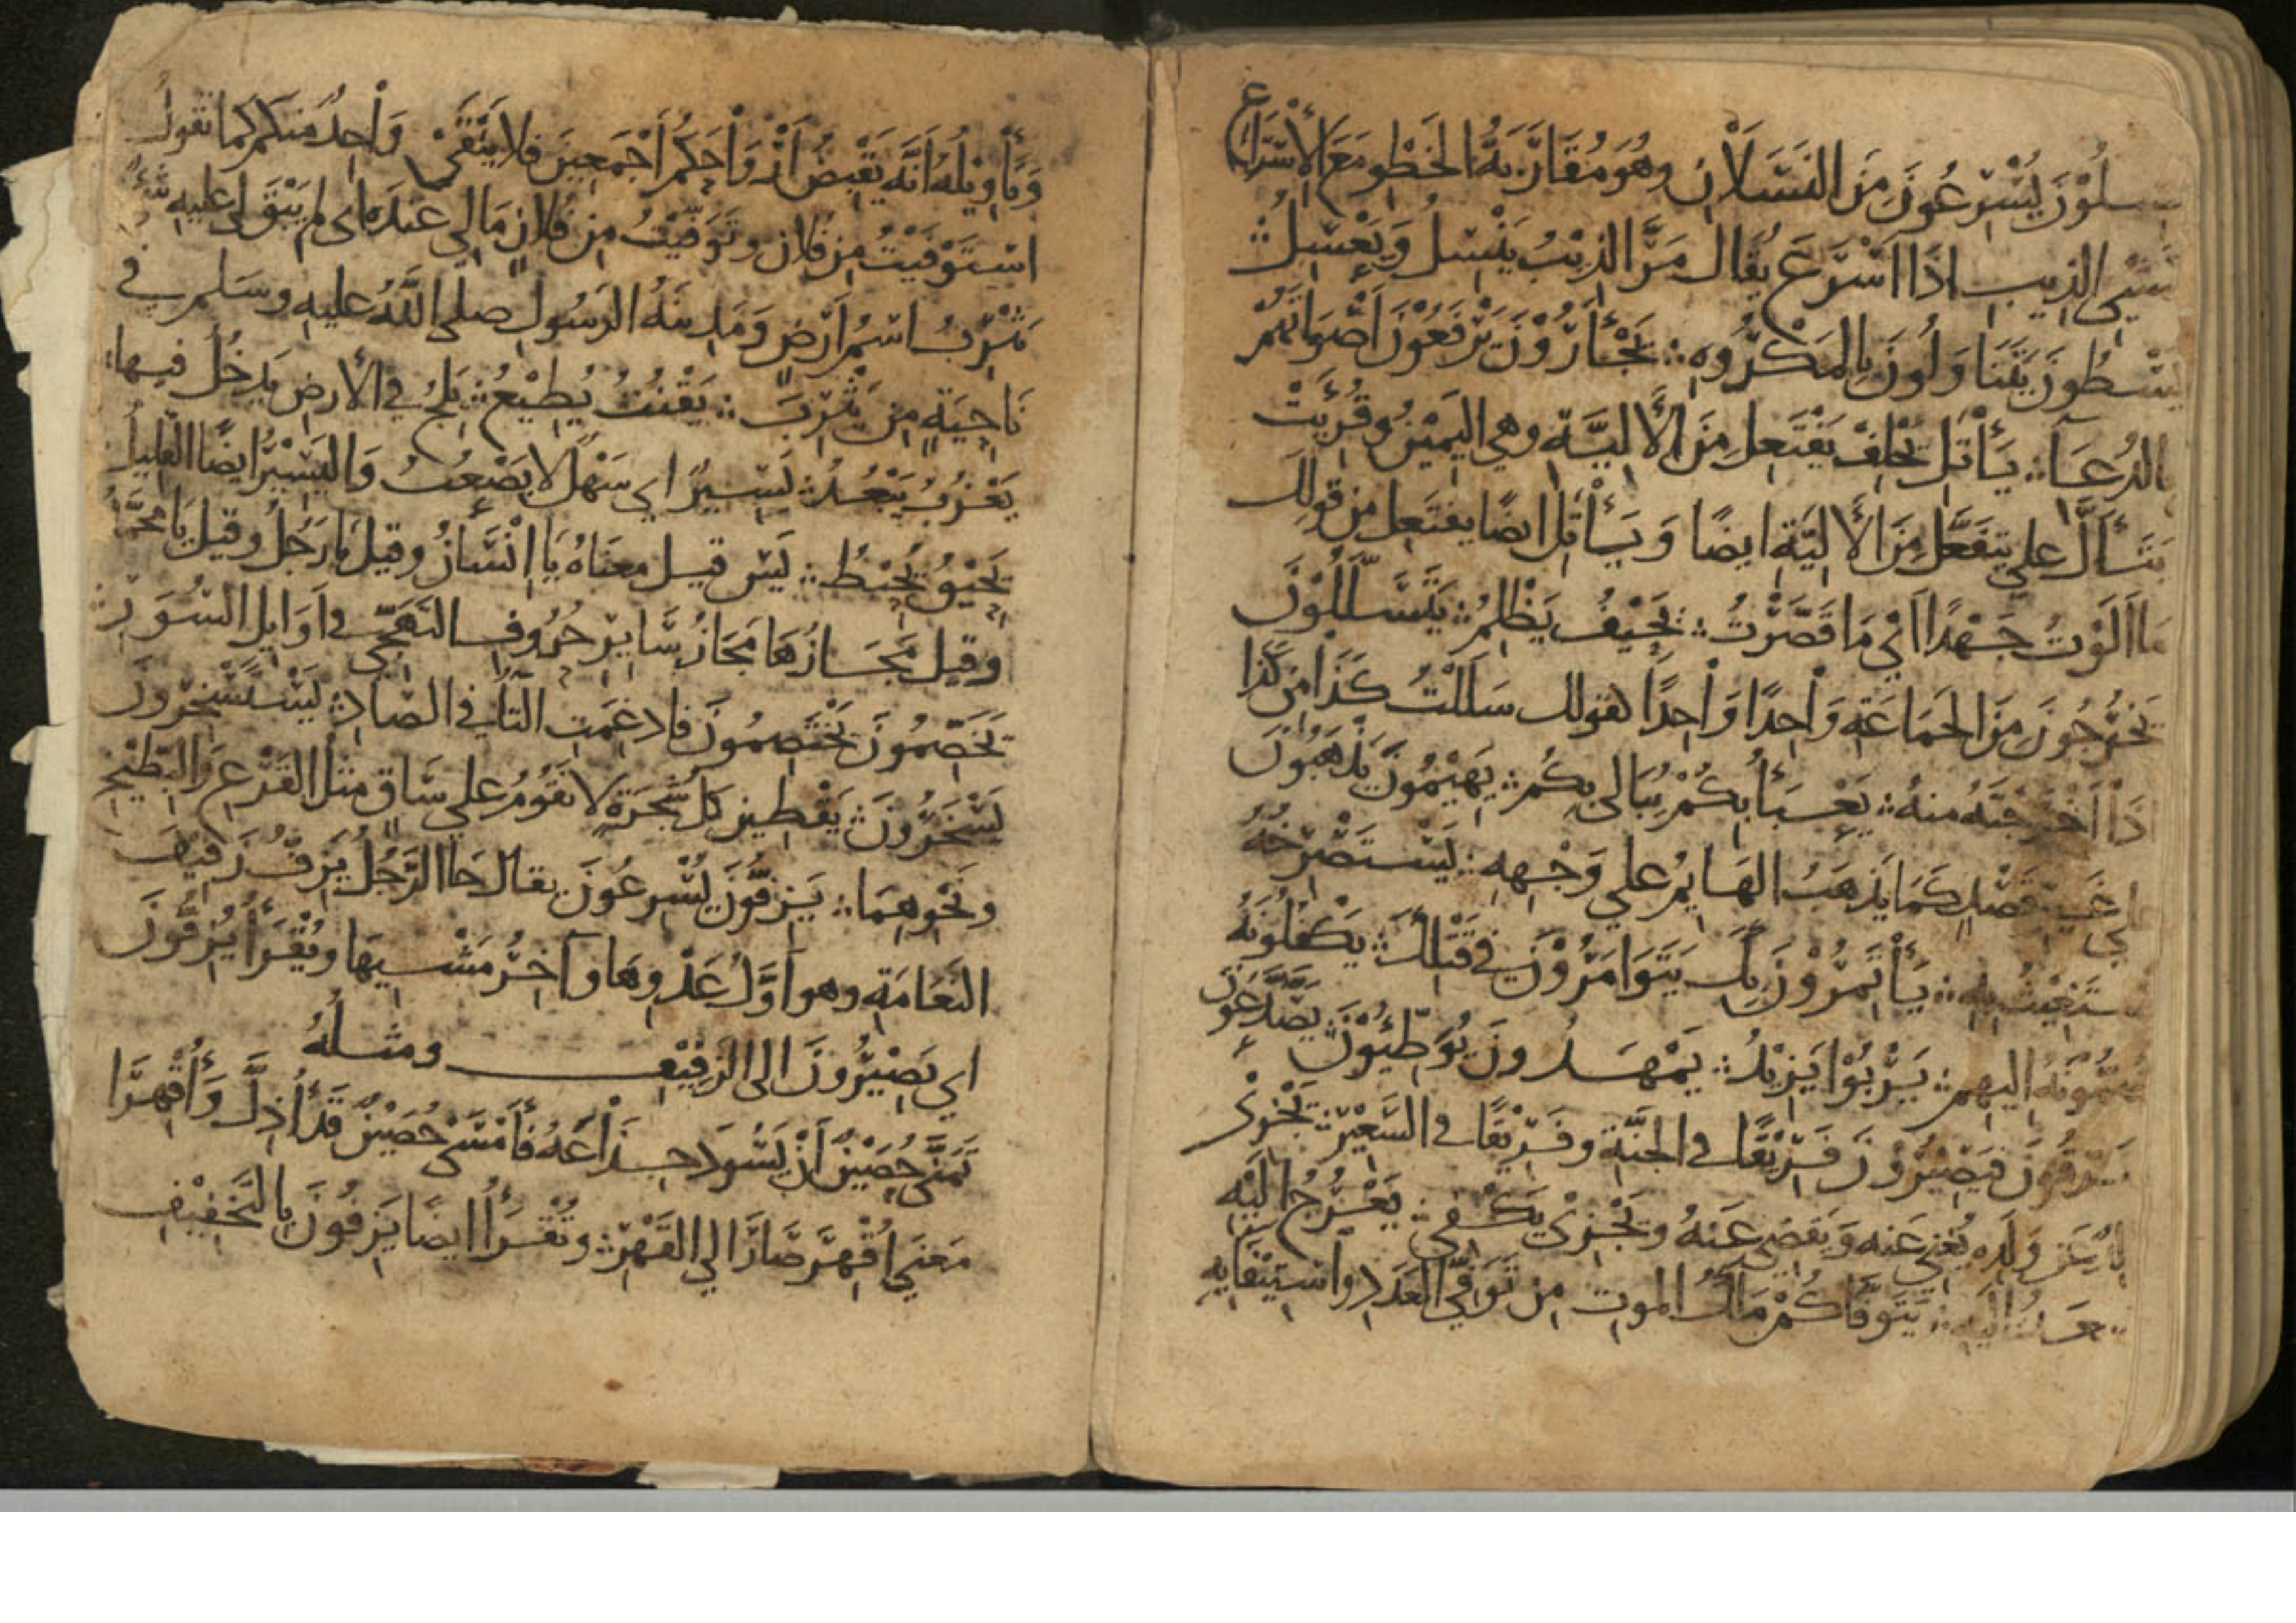 يَنسِلُوْنَ يُسْرِعُوْنَ مِنَ النَّسَلَانِ وهُوَ مُقَارَبَةُ الخَطْوِ مَعَ الْأَسْرَاعِ
كَمَشْيِ الذيبِ اذَا اَسْرَعَ يُقَال مَرَّ الذِيْبُ يَنْسِلُ وَيَعْسِلُ ؞
يَسْطُونَ يَتَنَاوَلُونَ بِالمَكْرُوهِ ؞ يَجْأَرُوْنَ يَرْفَعُوْنَ اَصْوَاتَهُمْ
بالدُعَآ ؞ يَأْتَلِ يَحْلِفْ يَفْتَعِل مِنَ الْأَلِيَّةِ وهي اليَمِيْن وقُرِيَتْ
يَتَأَلَّ علي يتفَعَّل مِنَ الْأَلِيَّةِ ايضًا وَيَأْتَلِ ايضًا يفتَعِل مِن قولِكَ
مَا اَلَوْتُ جَهْدًا اَيْ مَا قَصَّرْتُ ؞ يَحِيْفُ يَظْلِمُ ؞ يَتَسَلَّلُوْنَ
يَخْرُجُونَ مِنَ الجَمَاعَةِ وَاحِدًا وَاحِدًا كقولك سَلَلْتُ كَذَا مِن كَذَا
اذَا اَخْرَجْتَهُ منهُ ؞ يَعْبَأُ بِكُمْ يُبَالي بِكُمْ ؞ يَهِيْمُونَ يَذْهَبُوْنَ
علي غَيرِ قَصْدٍ كَمَا يَذهَبُ الهَايِمُ علي وَجْهِهِ ؞ يَسْتَصْرِخُهُ
يَسْتَغِيْثُ بِهِ ؞ يَأْتَمِرُوْنَ بِكَ يَتَوَامَرُوْنَ في قَتْلِكَ ؞ يَكْفُلُوْنَهُ
يَضُمُّونَهُ اليهِم ؞ يَرْبُوْا يَزِيْدُ ؞ يَمْهَدُونَ يُوَطِّيُوْنَ ؞ يَصَّدَّعُوْنَ
يَتفرَّقُونَ فيَصِيْرُوْنَ فَرِيْقًا في الجَنَّةِ وفَرِيْقًا في السَعِيْرِ ؞ يَجْزِيْ
وَالِدٌ عَن وَلَدِهِ يُغْنِي عَنه وَيَقضِي عَنهُ ويُجْزِيْ يَكْفِي ؞ يَعْرُجُ اِلَيْهِ
يصعَدُ اليهِ ؞ يَتَوَفَّاكُمْ مَلَكُ الموتِ مِن تَوَفِّي العَدَدِ واسْتِيْفَايِهِ
وَتَأْوِيْلُهُ اَنَّهُ يَقْبِضُ اَرْوَاحَكُم اَجْمَعِيْنَ فلا يَبْقَيْ وَاحِدٌ مِنكم كما تقولُ
اسْتَوْفَيْتُ مِن فُلان وتَوَفَّيْتُ مِن فُلَانٍ مَا لي عِندَهُ اي لم يَبْقَ لي عليهِ شَيْءٌ
يَثْرِبُ اسْمُ اَرْضٍ وَمَدِينَةُ الرسُول صلّي اللَّهُ عليهِ وسَلم في
نَاحِيَةٍ مِن يَثْرِبَ ؞ يَقْنُتْ يُطِيْعُ ؞ يَلِجُ في الأرضِ يَدخُلُ فيها ؞
يَعْزُبُ يَبْعُدُ ؞ يَسِيْرٌ اي سَهْلٌ لا يَصْعُبُ وَاليَسِيْرُ ايضًا القَلِيلُ
يَحِيْقُ يُحِيْطُ ؞ يَس قيل معنَاهُ يَا اِنْسَانُ وقيل يَا رَجُلُ وقيل يَا محمَّدُ
وقيل مَجَازُهَا مَجَازُ سَايِرِ حُرُوفِ التَهَجِّي في اَوَايِل السُوَرِ ؞
يَخَصِّمُونَ يَخْتَصِمُونَ فادغِمَتِ التَّاُ في الصَادِ ؞ يَسْتَسْخِرُونَ
يَسْخَرُوْنَ ؞ يَقْطِين كلُّ شَجَرَةٍ لا تَقُوْمُ علي سَاقٍ مِثلُ القَرْعِ وَالبِطِّيْخِ
ونَحْوِهِمَا ؞ يَزِفُّوْنَ يُسْرِعُوْنَ يقال جَا الرَّجُلُ يَزِفُّ زَفِيْفَ
النَعَامَةِ وهو اَوَّلُ عَدْوِهَا وآخِرُ مَشْيِهَا ويُقْرَأُ يُزِفُّوْنَ
اي يَصِيْرُونَ الي الزفِيْفِ ومثلُهُ
تَمَنَّي حُصَيْنٌ اَنْ يَسُودَ جِذَاعَهُ فأَمْسَيْ حُصَيْنٌ قَدْ أُذِلَّ وَأُقْهِرَا
مَعني اُقْهِرَ صَارَ الي القَهْرِ ؞ وتُقْرَأُ ايضًا يَزِفُونَ بالتَخفِيْفِ